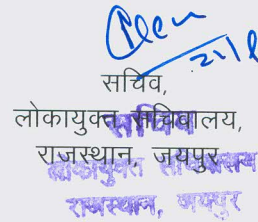 सचिव,
लोकायुक्त सचिवालय,
राजस्थान, जयपुर
सचिव
लोकायुक्त सचिवालय
राजस्थान, जयपुर